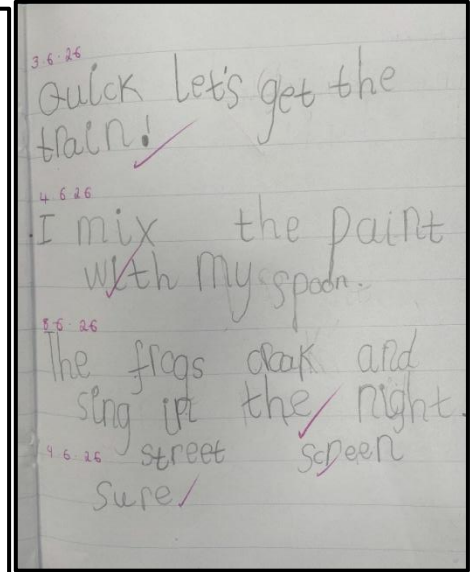 3.6.26
Quick Let's get the
train!
4.6.26
I mix the paint
with my spoon.
8.6.26
The frogs croak and
sing in the night.
9.6.26 street screen
sure